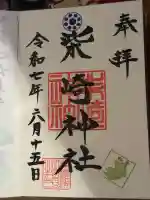 奉拝
柴崎神社
令和七年六月十五日